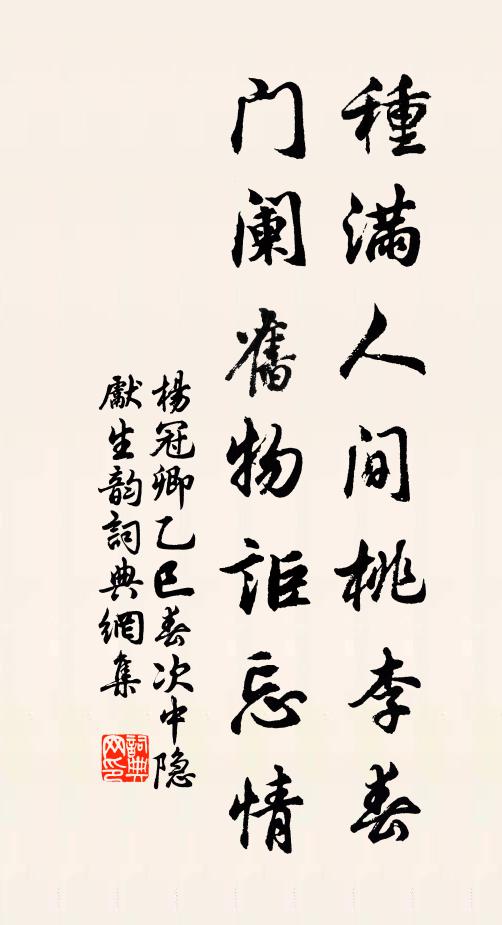 種滿人间桃李春
门阑舊物詎忘情
楊冠卿乙巳春次中隐
獻生韵詞典網集
詞典网印